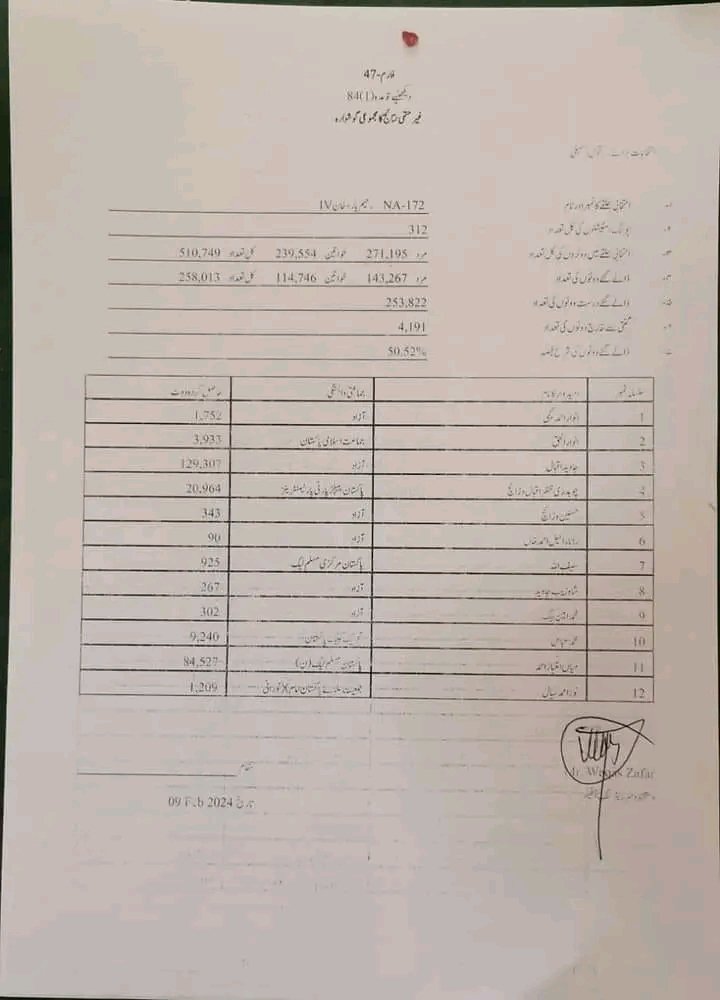 فارم-47
دیکھئیے قاعدہ 84(1)
غیر حتمی نتائج کا مجموعی گوشوارہ
انتخابات برائے قومی اسمبلی
۱- انتخابی حلقے کا نمبر اور نام NA-172 رحیم یار خان IV
۲- پولنگ اسٹیشنوں کی کل تعداد 312
۳- انتخابی حلقے میں ووٹروں کی کل تعداد مرد 271,195 خواتین 239,554 کل تعداد 510,749
۴- ڈالے گئے ووٹوں کی تعداد مرد 143,267 خواتین 114,746 کل تعداد 258,013
۵- ڈالے گئے درست ووٹوں کی تعداد 253,822
۶- گنتی سے خارج ووٹوں کی تعداد 4,191
۷- ڈالے گئے ووٹوں کی شرح فیصد 50.52%
سلسلہ نمبر امیدوار کا نام جماعتی وابستگی حاصل کردہ ووٹ
1 آزاد 1,752
2 انوار الحق جماعت اسلامی پاکستان 3,933
3 جاوید اقبال آزاد 129,307
4 چوہدری ظفر اقبال وڑائچ پاکستان پیپلز پارٹی پارلیمنٹیرینز 20,964
5 حسین وڑائچ آزاد 343
6 احمد خاں آزاد 90
7 سیف اللہ پاکستان مرکزی مسلم لیگ 925
8 شاہ زیب جاوید آزاد 267
9 محمد امین بیگ آزاد 302
10 محمد عباس تحریک لبیک پاکستان 9,240
11 میاں امتیاز احمد پاکستان مسلم لیگ (ن) 84,527
12 نور احمد سیال جمعیت علمائے پاکستان (نورانی) 1,209
Waqas Zafar
مقام
تاریخ 09 Feb 2024